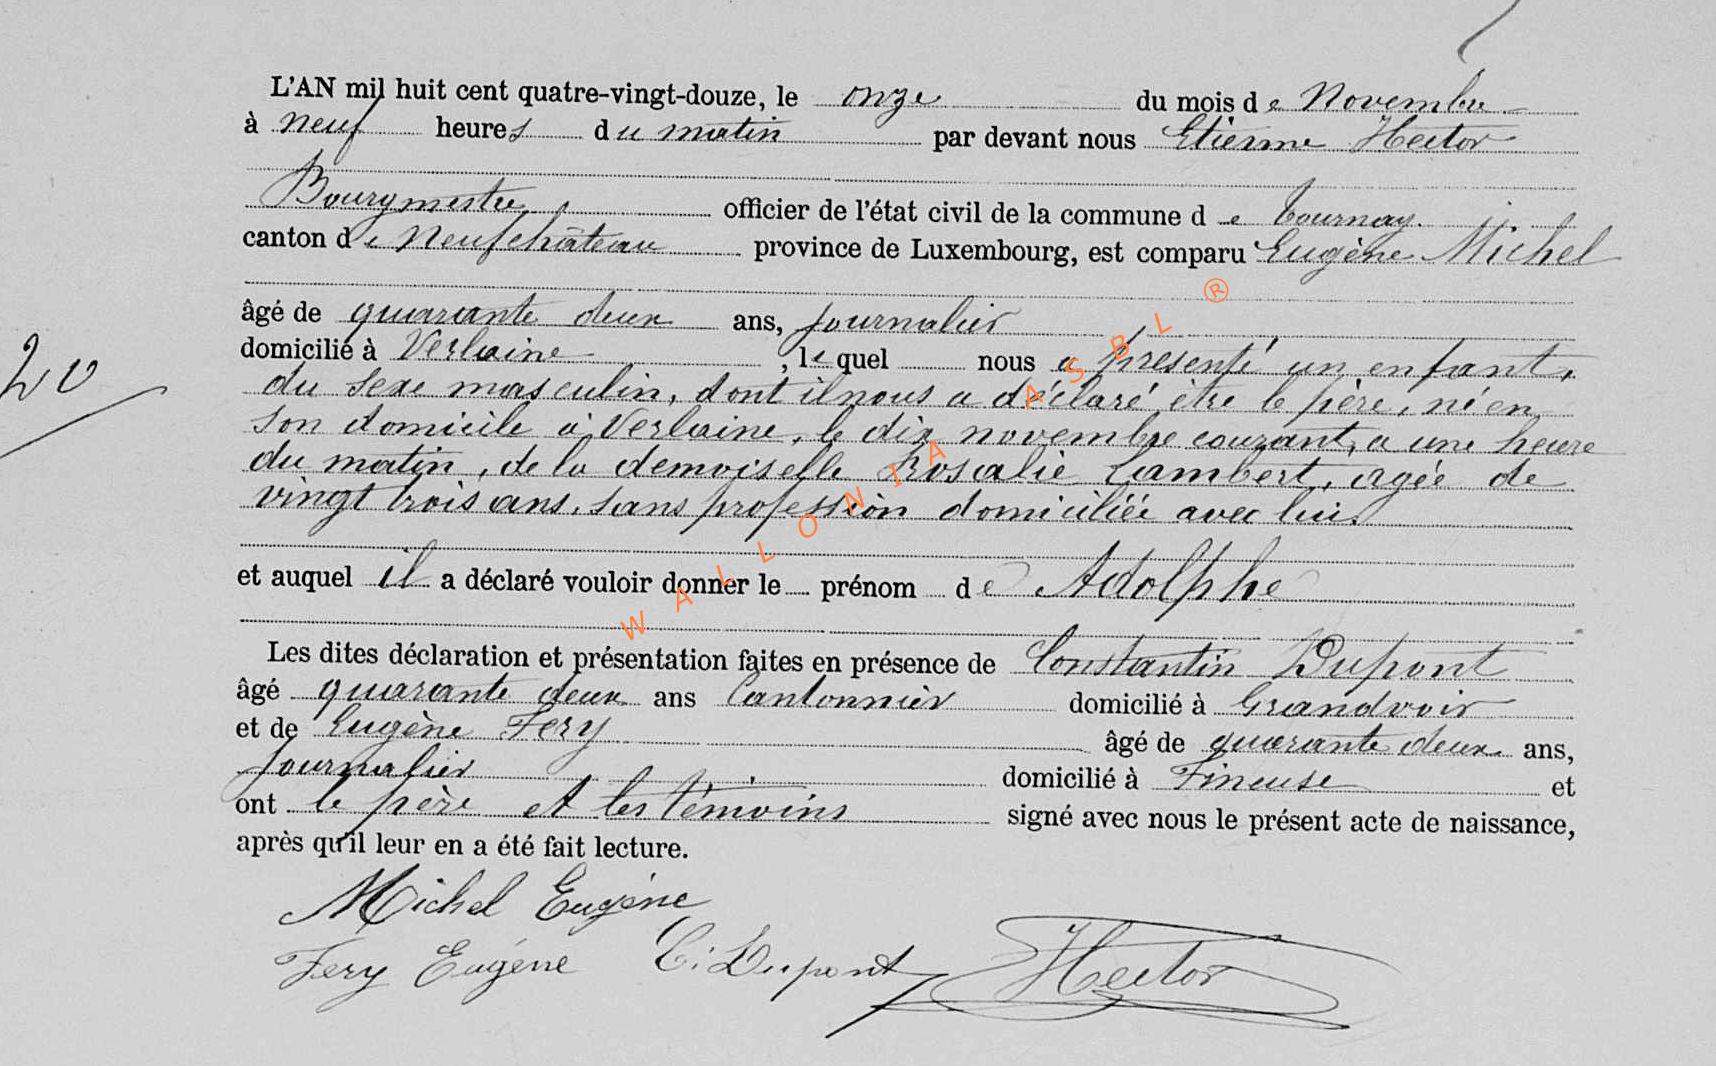 L'AN mil huit cent quatre-vingt-douze, le onze du mois de Novembre
à neuf heures du matin par devant nous Etienne Hector
Bourgmestre officier de l'état civil de la commune de Tournay.
canton de Neufchâteau province de Luxembourg, est comparu Eugène Michel
âgé de quarante deux ans, journalier
domicilié à Verlaine, lequel nous a présenté un enfant,
du sexe masculin, dont il nous a déclaré être le père, né en
son domicile à Verlaine, le dix novembre courant, a une heure
du matin, de la demoiselle Rosalie Lambert, agée de
vingt trois ans, sans profession domiciliée avec lui.
20
et auquel il a déclaré vouloir donner le prénom de Adolphe
Les dites déclaration et présentation faites en présence de Constantin Dupont
âgé quarante deux ans Cantonnier domicilié à Grandvoir
et de Eugène Fery âgé de quarante deux ans,
Journalier domicilié à Fineuse et
ont le père et les témoins signé avec nous le présent acte de naissance,
après qu'il leur en a été fait lecture.
Michel Eugène
Fery Eugéne C. Dupont Hector
WALLONIA ASBL ®